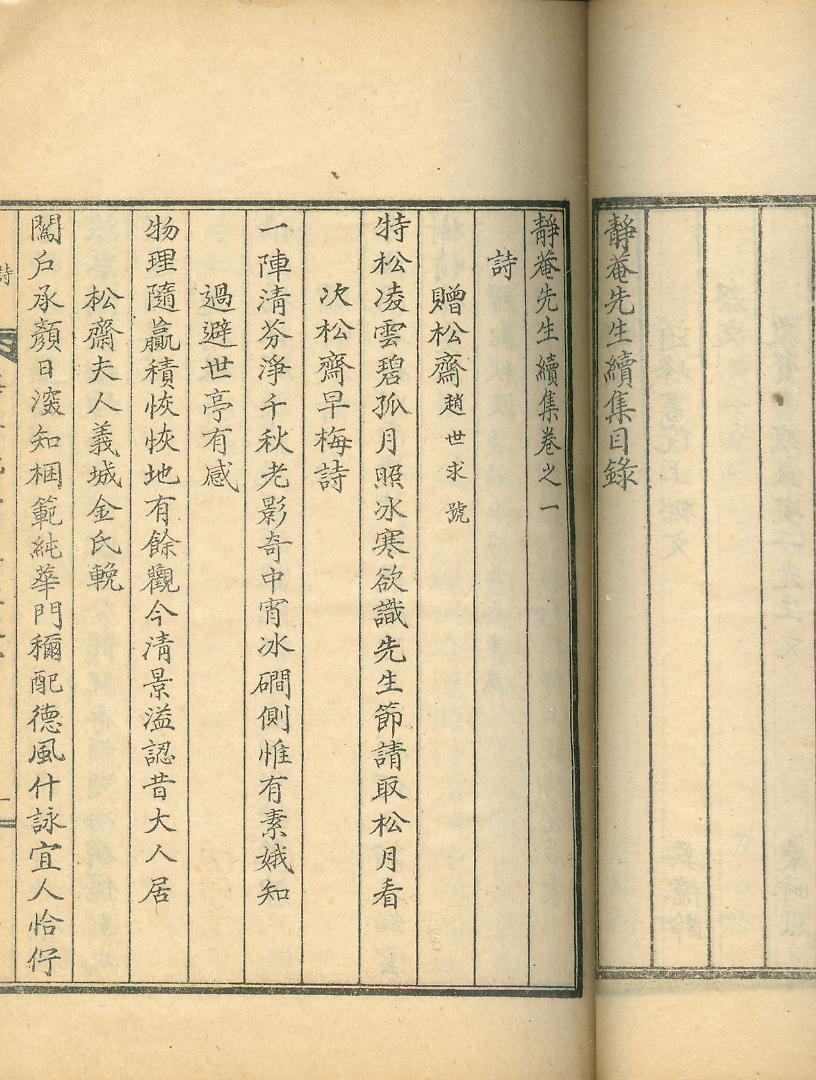 靜菴先生續集目錄
靜菴先生續集卷之一
詩
贈松齋趙世求號
特松凌雲碧孤月照冰寒欲識先生節請取松月看
次松齋早梅詩
一陣清芬淨千秋老影奇中宵冰磵側惟有素娥知
過避世亭有感
物理隨贏積恢恢地有餘觀今清景溢認昔大人居
松齋夫人義城金氏輓
闖戶承顏日深知梱範純華門稱配德風什詠宜人恰仔
詩